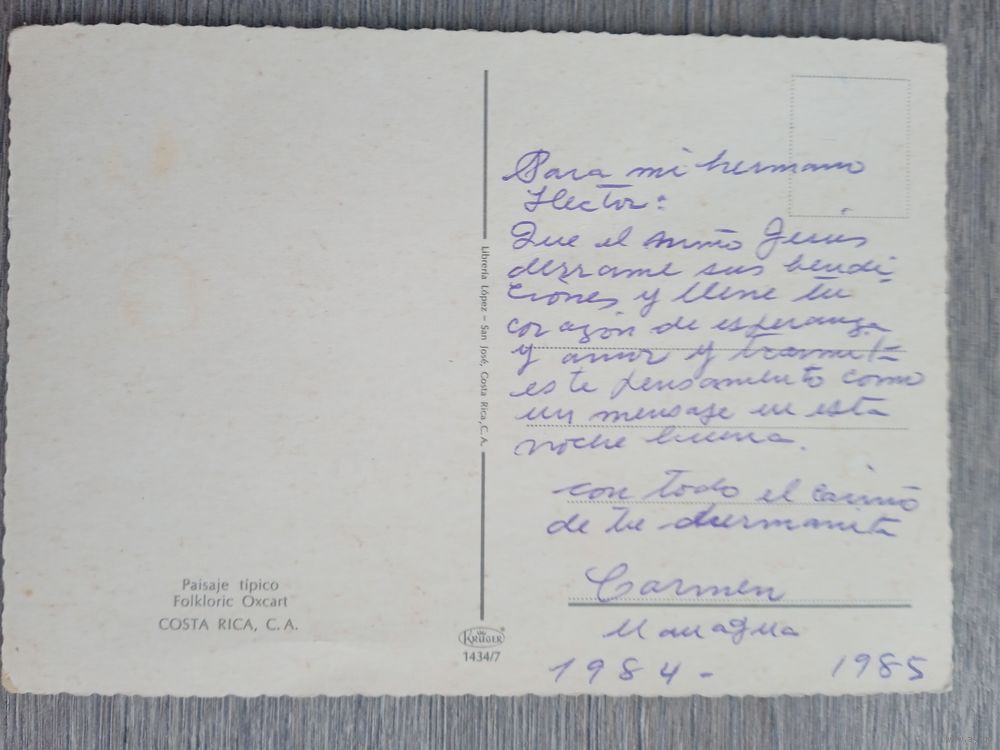 Paisaje típico
Folkloric Oxcart
COSTA RICA, C. A.
Librería López – San José, Costa Rica, C. A.
KRÜGER
1434/7
Para mi hermano
Hector:
Que el niño Jesús
derrame sus bendi-
ciones y llene tu
corazón de esperanza
y amor y
este pensamento como
un mensaje en esta
noche buena.
con todo el cariño
de tu hermanita
Carmen
Managua
1984 - 1985